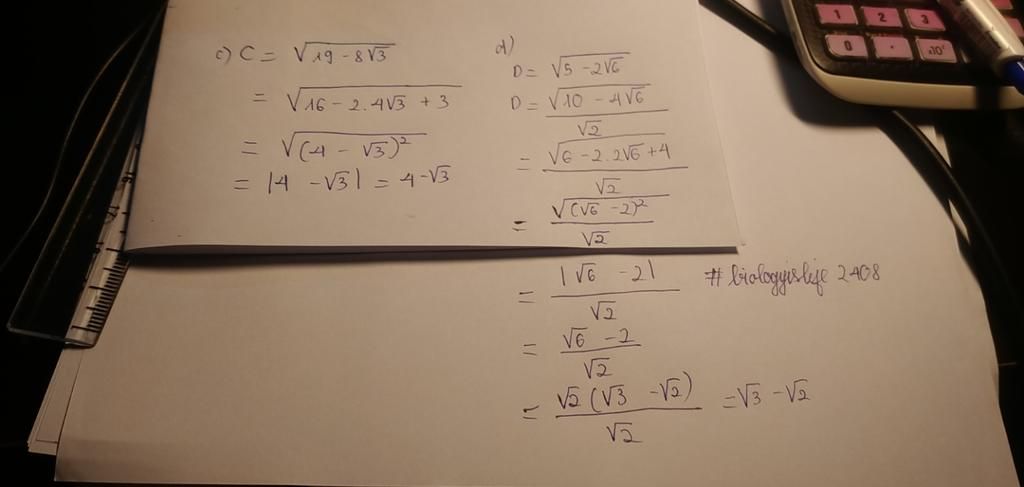 c) C = √19 - 8√3
= √16 - 2.4√3 + 3
= √(4 - √3)²
= |4 - √3| = 4 - √3
d)
D = √5 - 2√6
D = √10 - 4√6 / √2
= √6 - 2.2√6 + 4 / √2
= √(√6 - 2)² / √2
= |√6 - 2| / √2
# biologyislife 2408
= √6 - 2 / √2
= √2 (√3 - √2) / √2 = √3 - √2
1 2 3
0 . x10ˣ